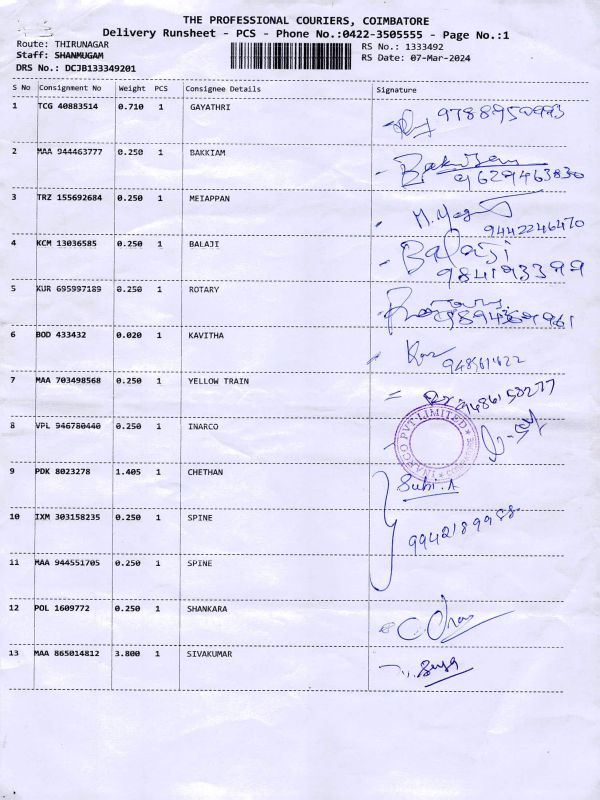 THE PROFESSIONAL COURIERS, COIMBATORE
Delivery Runsheet - PCS - Phone No.:0422-3505555 - Page No.:1
Route: THIRUNAGAR
RS No.: 1333492
Staff: SHANMUGAM
RS Date: 07-Mar-2024
DRS No.: DCJB133349201
S No Consignment No Weight PCS Consignee Details Signature
1 TCG 40883514 0.710 1 GAYATHRI
2 MAA 944463777 0.250 1 BAKKIAM
9629463830
3 TRZ 155692684 0.250 1 MEIAPPAN
9442246470
4 KCM 13036585 0.250 1 BALAJI Balaji
984193399
5 KUR 695997189 0.250 1 ROTARY
6 BOD 433432 0.020 1 KAVITHA
7 MAA 703498568 0.250 1 YELLOW TRAIN
9486150277
8 VPL 946780440 0.250 1 INARCO
INARCO PVT LIMITED
9 PDK 8023278 1.405 1 CHETHAN Subi.A
10 IXM 303158235 0.250 1 SPINE 9942189988
11 MAA 944551705 0.250 1 SPINE
12 POL 1609772 0.250 1 SHANKARA
13 MAA 865014812 3.800 1 SIVAKUMAR